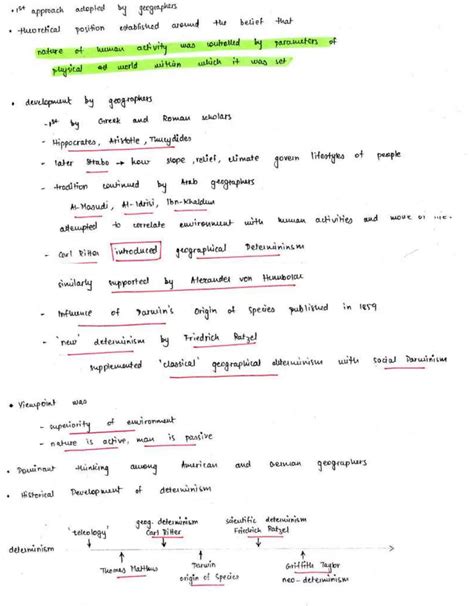 • 1st approach adopted by geographers
• theoretical position established around the belief that
nature of human activity was controlled by parameters of
physical world within which it was set
• development by geographers
- 1st by Greek and Roman scholars
- Hippocrates, Aristotle, Thucydides
- later Strabo → how slope, relief, climate govern lifestyles of people
- tradition continued by Arab geographers
Al-Masudi, Al-Idrisi, Ibn-Khaldun
attempted to correlate environment with human activities and mode of life.
- Carl Ritter introduced geographical Determininsm
similarly supported by Alexander von Humboldt
- Influence of Darwin's Origin of Species published in 1859
- 'new' determinism by Friedrich Ratzel
supplemented 'classical' geographical determinism with social Darwinism
• Viewpoint was
- superiority of environment
- nature is active, man is passive
• Dominant thinking among American and German geographers
• Historical Development of determinism
'teleology' geog. determinism Carl Ritter scientific determinism Friedrich Ratzel
determinism
Thomas Malthus Darwin origin of Species Griffith Taylor neo-determinism